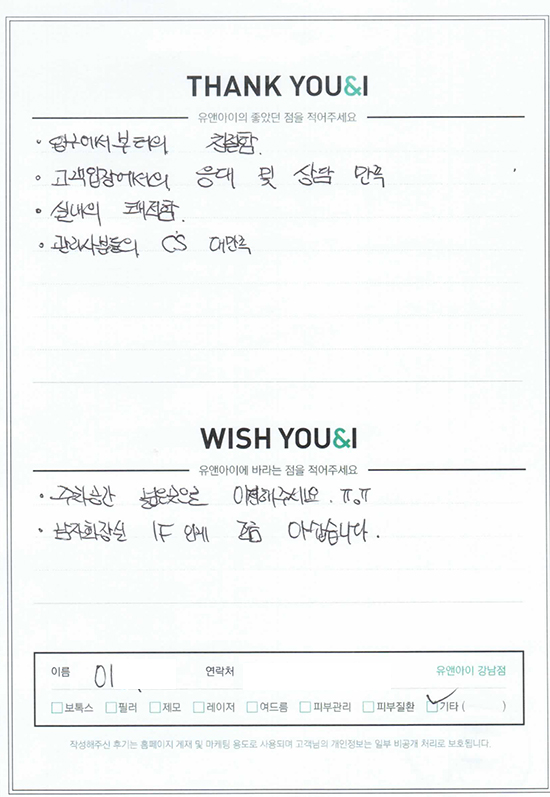 THANK YOU&I
유앤아이의 좋았던 점을 적어주세요
· 입구에서부터의 친절함.
· 고객입장에서의 응대 및 상담 만족
· 실내의 쾌적함.
· 관리사분들의 CS 대만족
WISH YOU&I
유앤아이에 바라는 점을 적어주세요
· 주차공간 넓은곳으로 이전해주세요. ㅠ.ㅠ
· 남자화장실 1F 인게 조금 아쉽습니다.
이름 이 . 연락처 유앤아이 강남점
보톡스 필러 제모 레이저 여드름 피부관리 피부질환 기타 ( )
작성해주신 후기는 홈페이지 게재 및 마케팅 용도로 사용되며 고객님의 개인정보는 일부 비공개 처리로 보호됩니다.